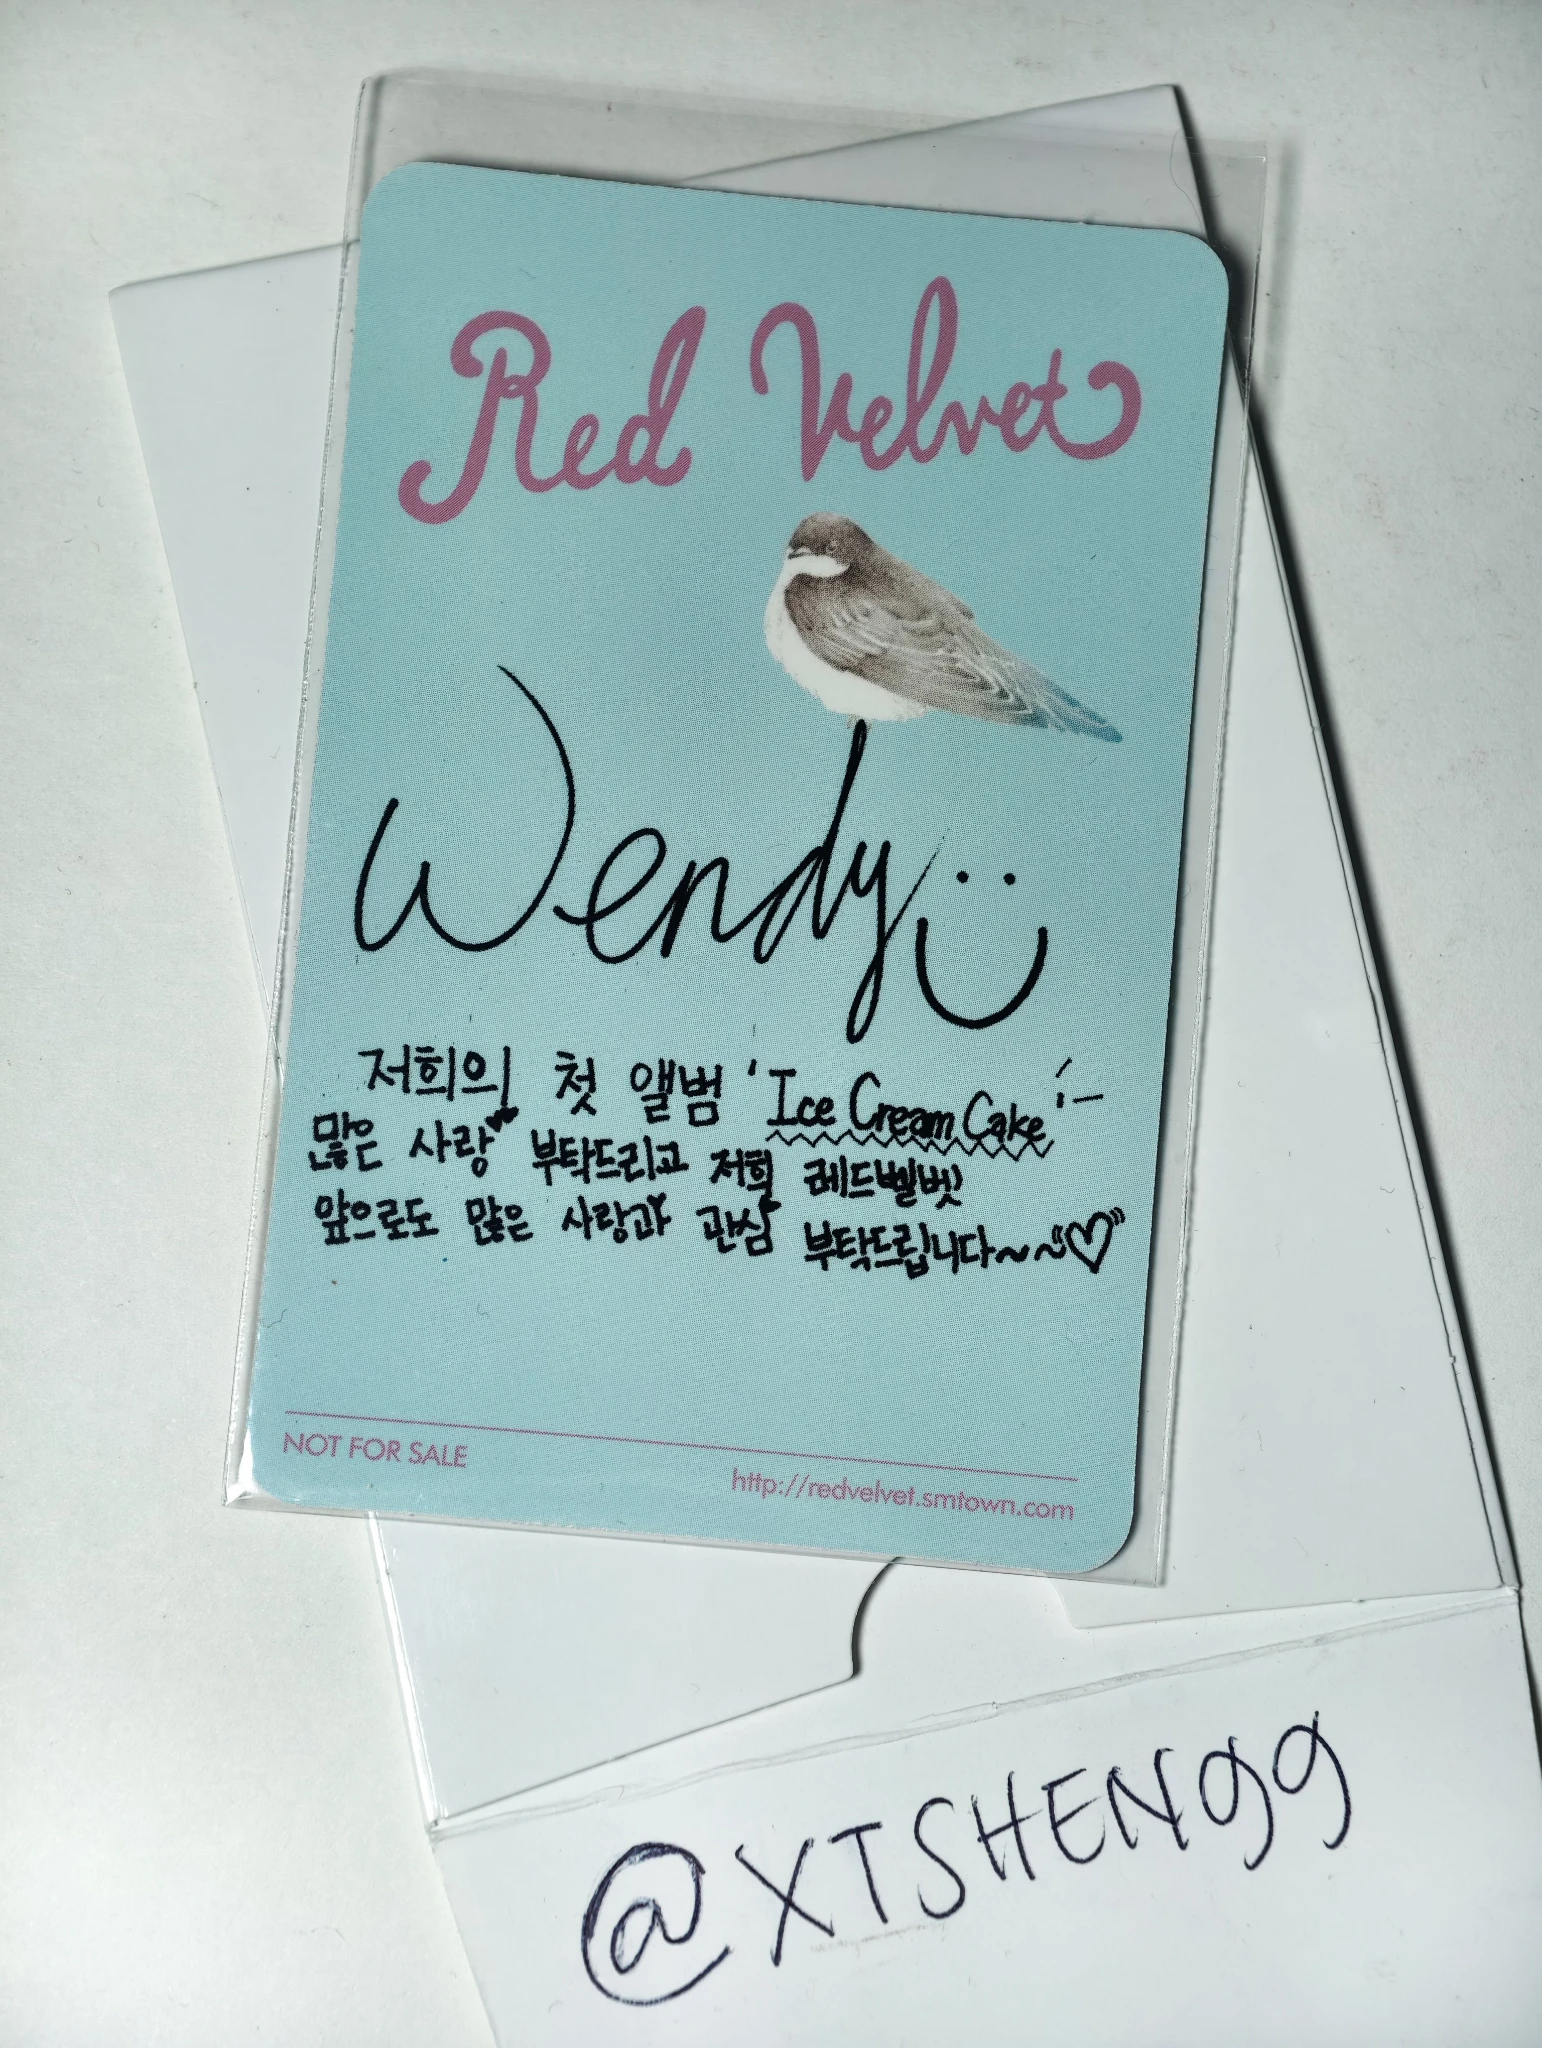 Red Velvet
Wendy
저희의 첫 앨범 'Ice Cream Cake'
많은 사랑 부탁드리고 저희 레드벨벳
앞으로도 많은 사랑과 관심 부탁드립니다~~♡
NOT FOR SALE
http://redvelvet.smtown.com
@XTSHEN99